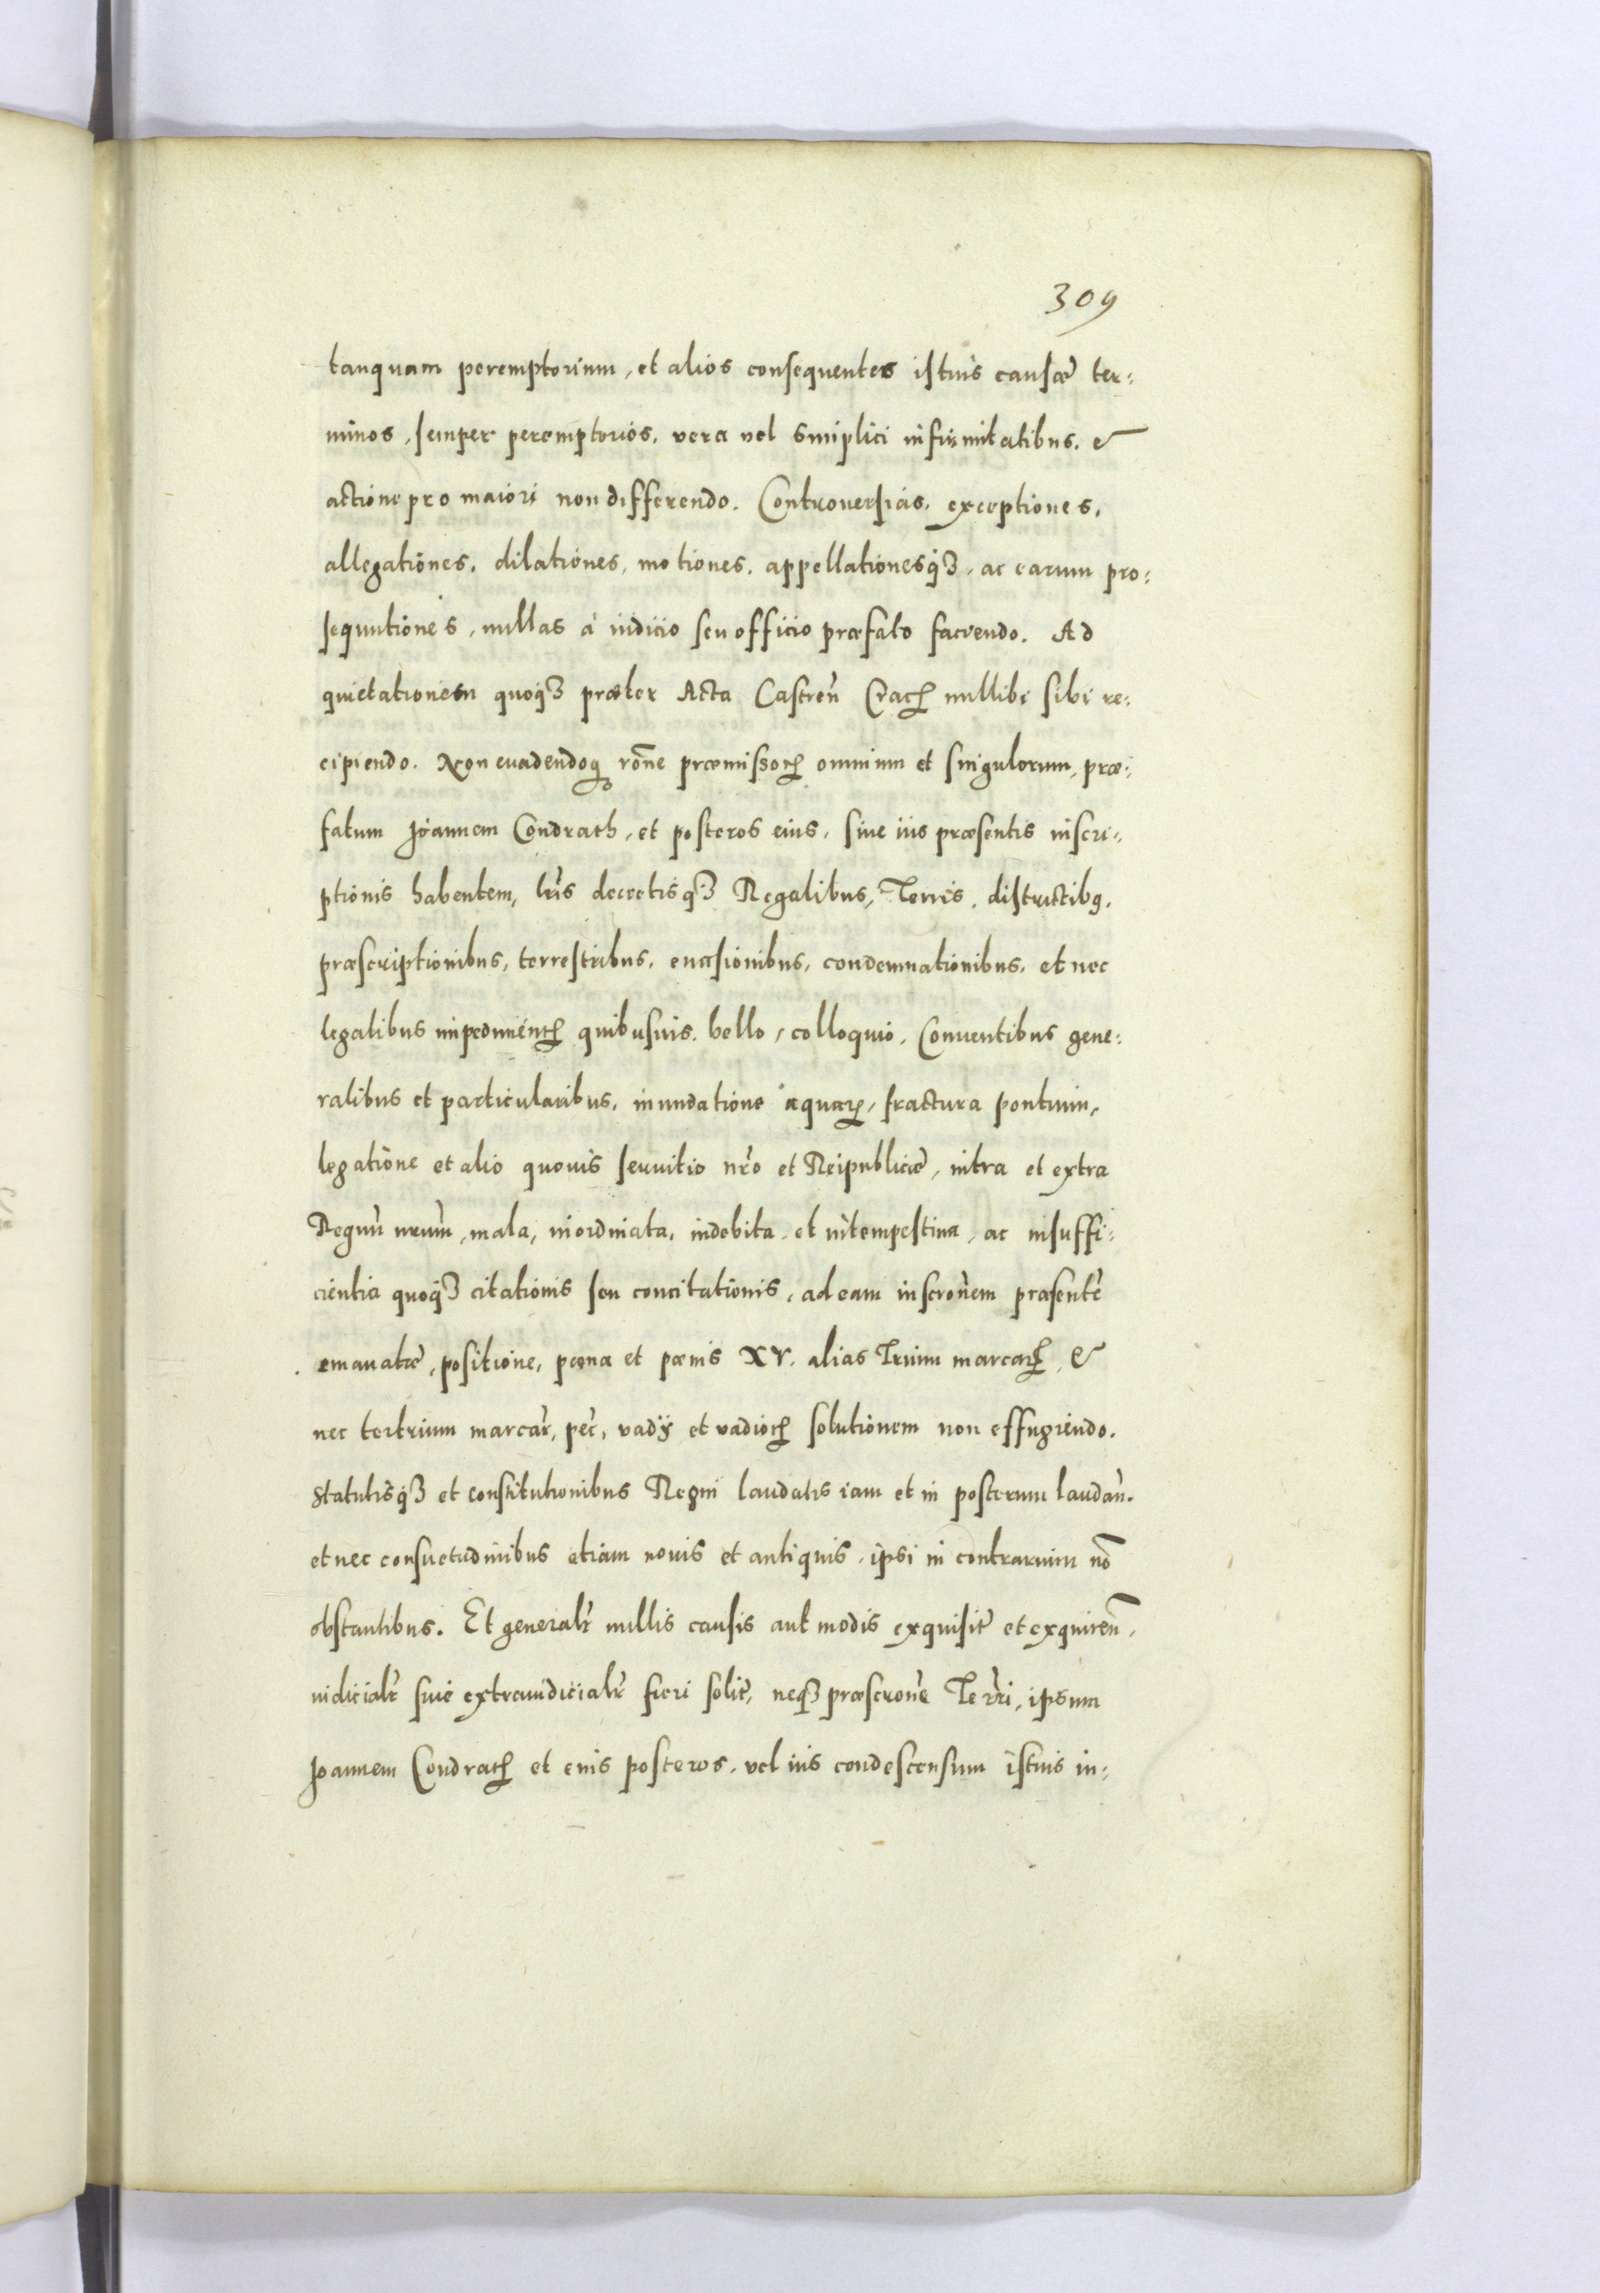 309
tanquam peremptorium, et alios consequentes istius causæ ter:
minos, semper peremptorios, vera vel simplici infirmitatibus, et
actione pro maiori non differendo. Controuersias, exceptiones,
allegationes, dilationes, motiones, appellationesq3, ac earum pro:
sequutiones, nullas à iudicio seu officio præfato faciendo. Ad
quietationem quoq3 præter Acta Castren̄ Crac̄ nullibi sibi re:
cipiendo. Non euadendoq rōne præmissor omnium et singulorum, præ:
fatum Joannem Condrath, et posteros eius, siue ius præsentis inscri:
ptionis habentem, lris decretisq3 Regalibus, Terris, districtibq,
præscriptionibus, terrestribus, euasionibus, condemnationibus, et nec
legalibus impedimen̄t quibusuis, bello, colloquio, Conuentibus gene:
ralibus et particularibus, inundatione aquar, fractura pontium,
legatione et alio quouis seruitio nr̄o et Reipublicæ, intra et extra
Regnū nrum̄, mala, inordinata, indebita, et intempestiua, ac insuffi:
cientia quoq3 citationis seu concitationis, ad eam inscronem præsentē
emanatæ, positione, pœna et pœnis XV. alias Trium marcar, et
nec tertrium marcar, pec, vadij et vadior solutionem non effugiendo.
Statutisq3 et constitutionibus Regni laudatis iam et in posterum laudan̄.
et nec consuetudinibus etiam nouis et antiquis, ipsi in contrarium nō
obstantibus. Et generalr nullis causis aut modis exquisit et exquiren̄,
iudicialr siue extraiudicialr fieri solit, neq3 præscrone Terri, ipsum
Joannem Condrath et eius posteros, vel ius condescensum istius in: